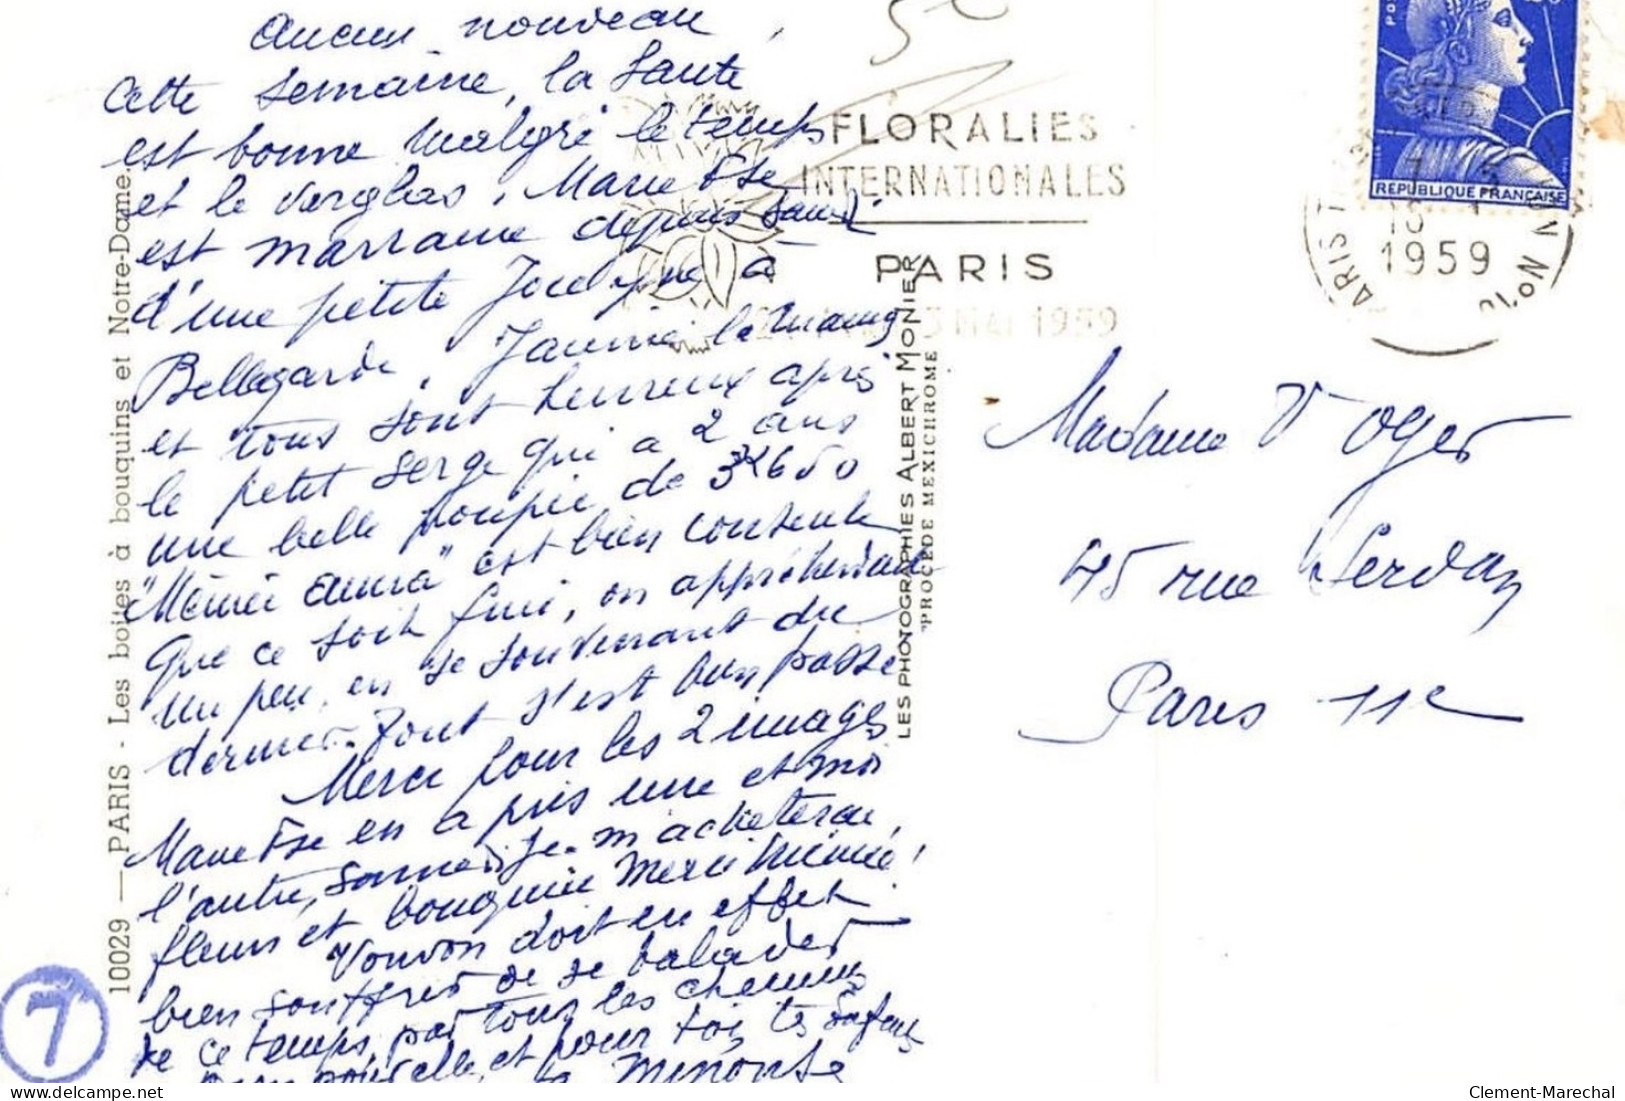 aucun nouveau
cette semaine, la santé
est bonne malgré le temps
et le verglas. Marie Thse
est marraine depuis
d'une petite Jocelyne à
Bellegarde. Janine la maman
et tous sont heureux après
le petit Serge qui a 2 ans
une belle poupée de 3K650
"Mémée" est bien contente
que ce soit fini, on appréhendait
un peu, en se souvenant du
dernier. Tout s'est bien passé
Merci pour les 2 images
Marie Thse en a pris une et moi
l'autre, samedi je m'acheterai
fleurs et bouquin merci Mémée!
Vonvon doit en effet
bien souffrir de se balader
de ce temps, par tous les chemins
et pour toi,
10029 — PARIS - Les boites à bouquins et Notre-Dame.
7
FLORALIES
INTERNATIONALES
PARIS
MAI 1959
LES PHOTOGRAPHIES ALBERT MONIER
"PROCÉDÉ MEXICHROME
REPUBLIQUE FRANÇAISE
1959
Madame Vᵉ Oger
45 rue Servan
Paris 11e
Clement-Marechal